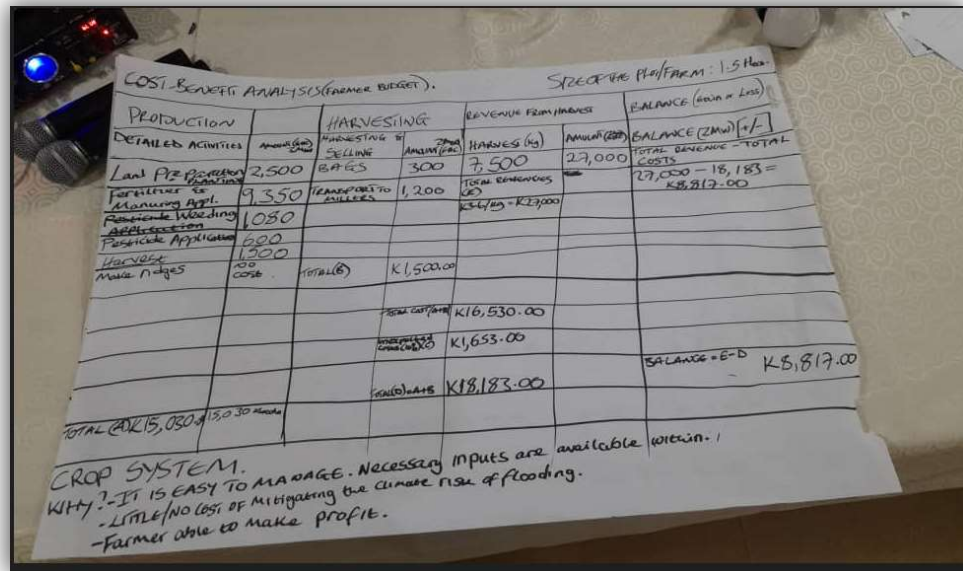 COST-BENEFIT ANALYSIS (FARMER BUDGET).
SIZE OF THE Plot/FARM: 1.5 Hec.
PRODUCTION
HARVESTING
REVENUE FROM HARVEST
BALANCE (Gain or Loss)
DETAILED ACTIVITIES
HARVESTING & SELLING
HARVESS (Kg)
BALANCE (ZMW) [+/-]
Land Preparation 2,500 BAGS 300 7,500 27,000 TOTAL REVENUE - TOTAL COSTS
27,000 - 18,183 =
K8,817.00
Fertilizer & Manuring Appl. 9,350 TRANSPORT TO MILLERS 1,200 TOTAL REVENUES (E)
K3.6/Kg = K27,000
Pesticide Weeding 1080
APPLICATION
Pesticide Application 600
Harvest 1,500
Make ridges no cost TOTAL (B) K1,500.00
TOTAL COST (A+B) K16,530.00
K1,653.00
BALANCE = E-D K8,817.00
TOTAL (D) = A+B K18,183.00
TOTAL (A) K15,030 15,030
CROP SYSTEM.
WHY? - IT IS EASY TO MANAGE. Necessary inputs are available within.
- LITTLE/NO COST OF Mitigating the climate risk of flooding.
- Farmer able to make profit.